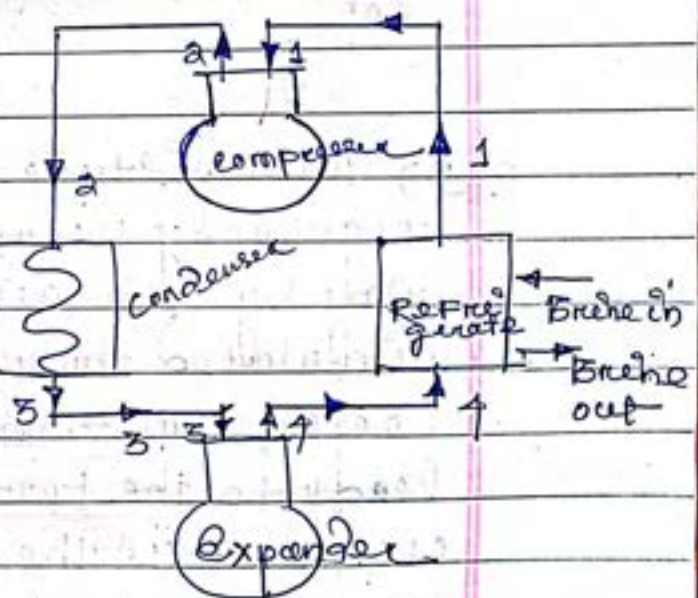 2 1
compresser
1
2
condenser
Refri
gerate
Brine in
Brine
out
3
3 3 4
4
Expander